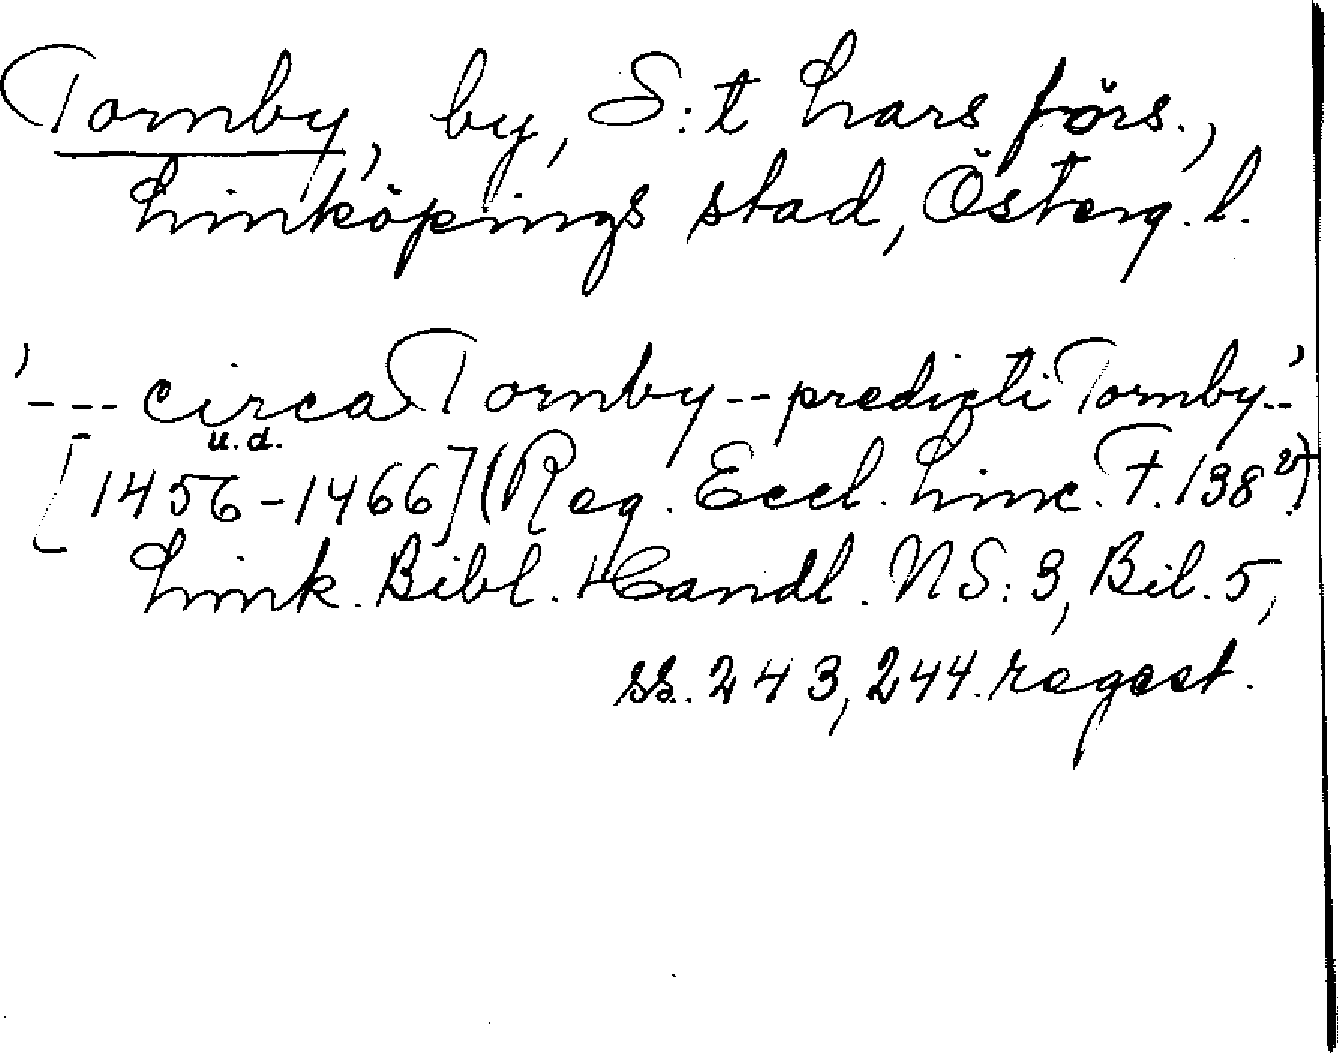 Tornby, by, S:t Lars förs.,
Linköpings stad, Österg. l.
'--- circa Tornby -- predicti Tornby --'
u. d.
[1456-1466] (Reg. Eccl. Linc. F. 138 v)
Link. Bibl. Handl. NS: 3, Bil. 5,
ss. 243, 244. regest.